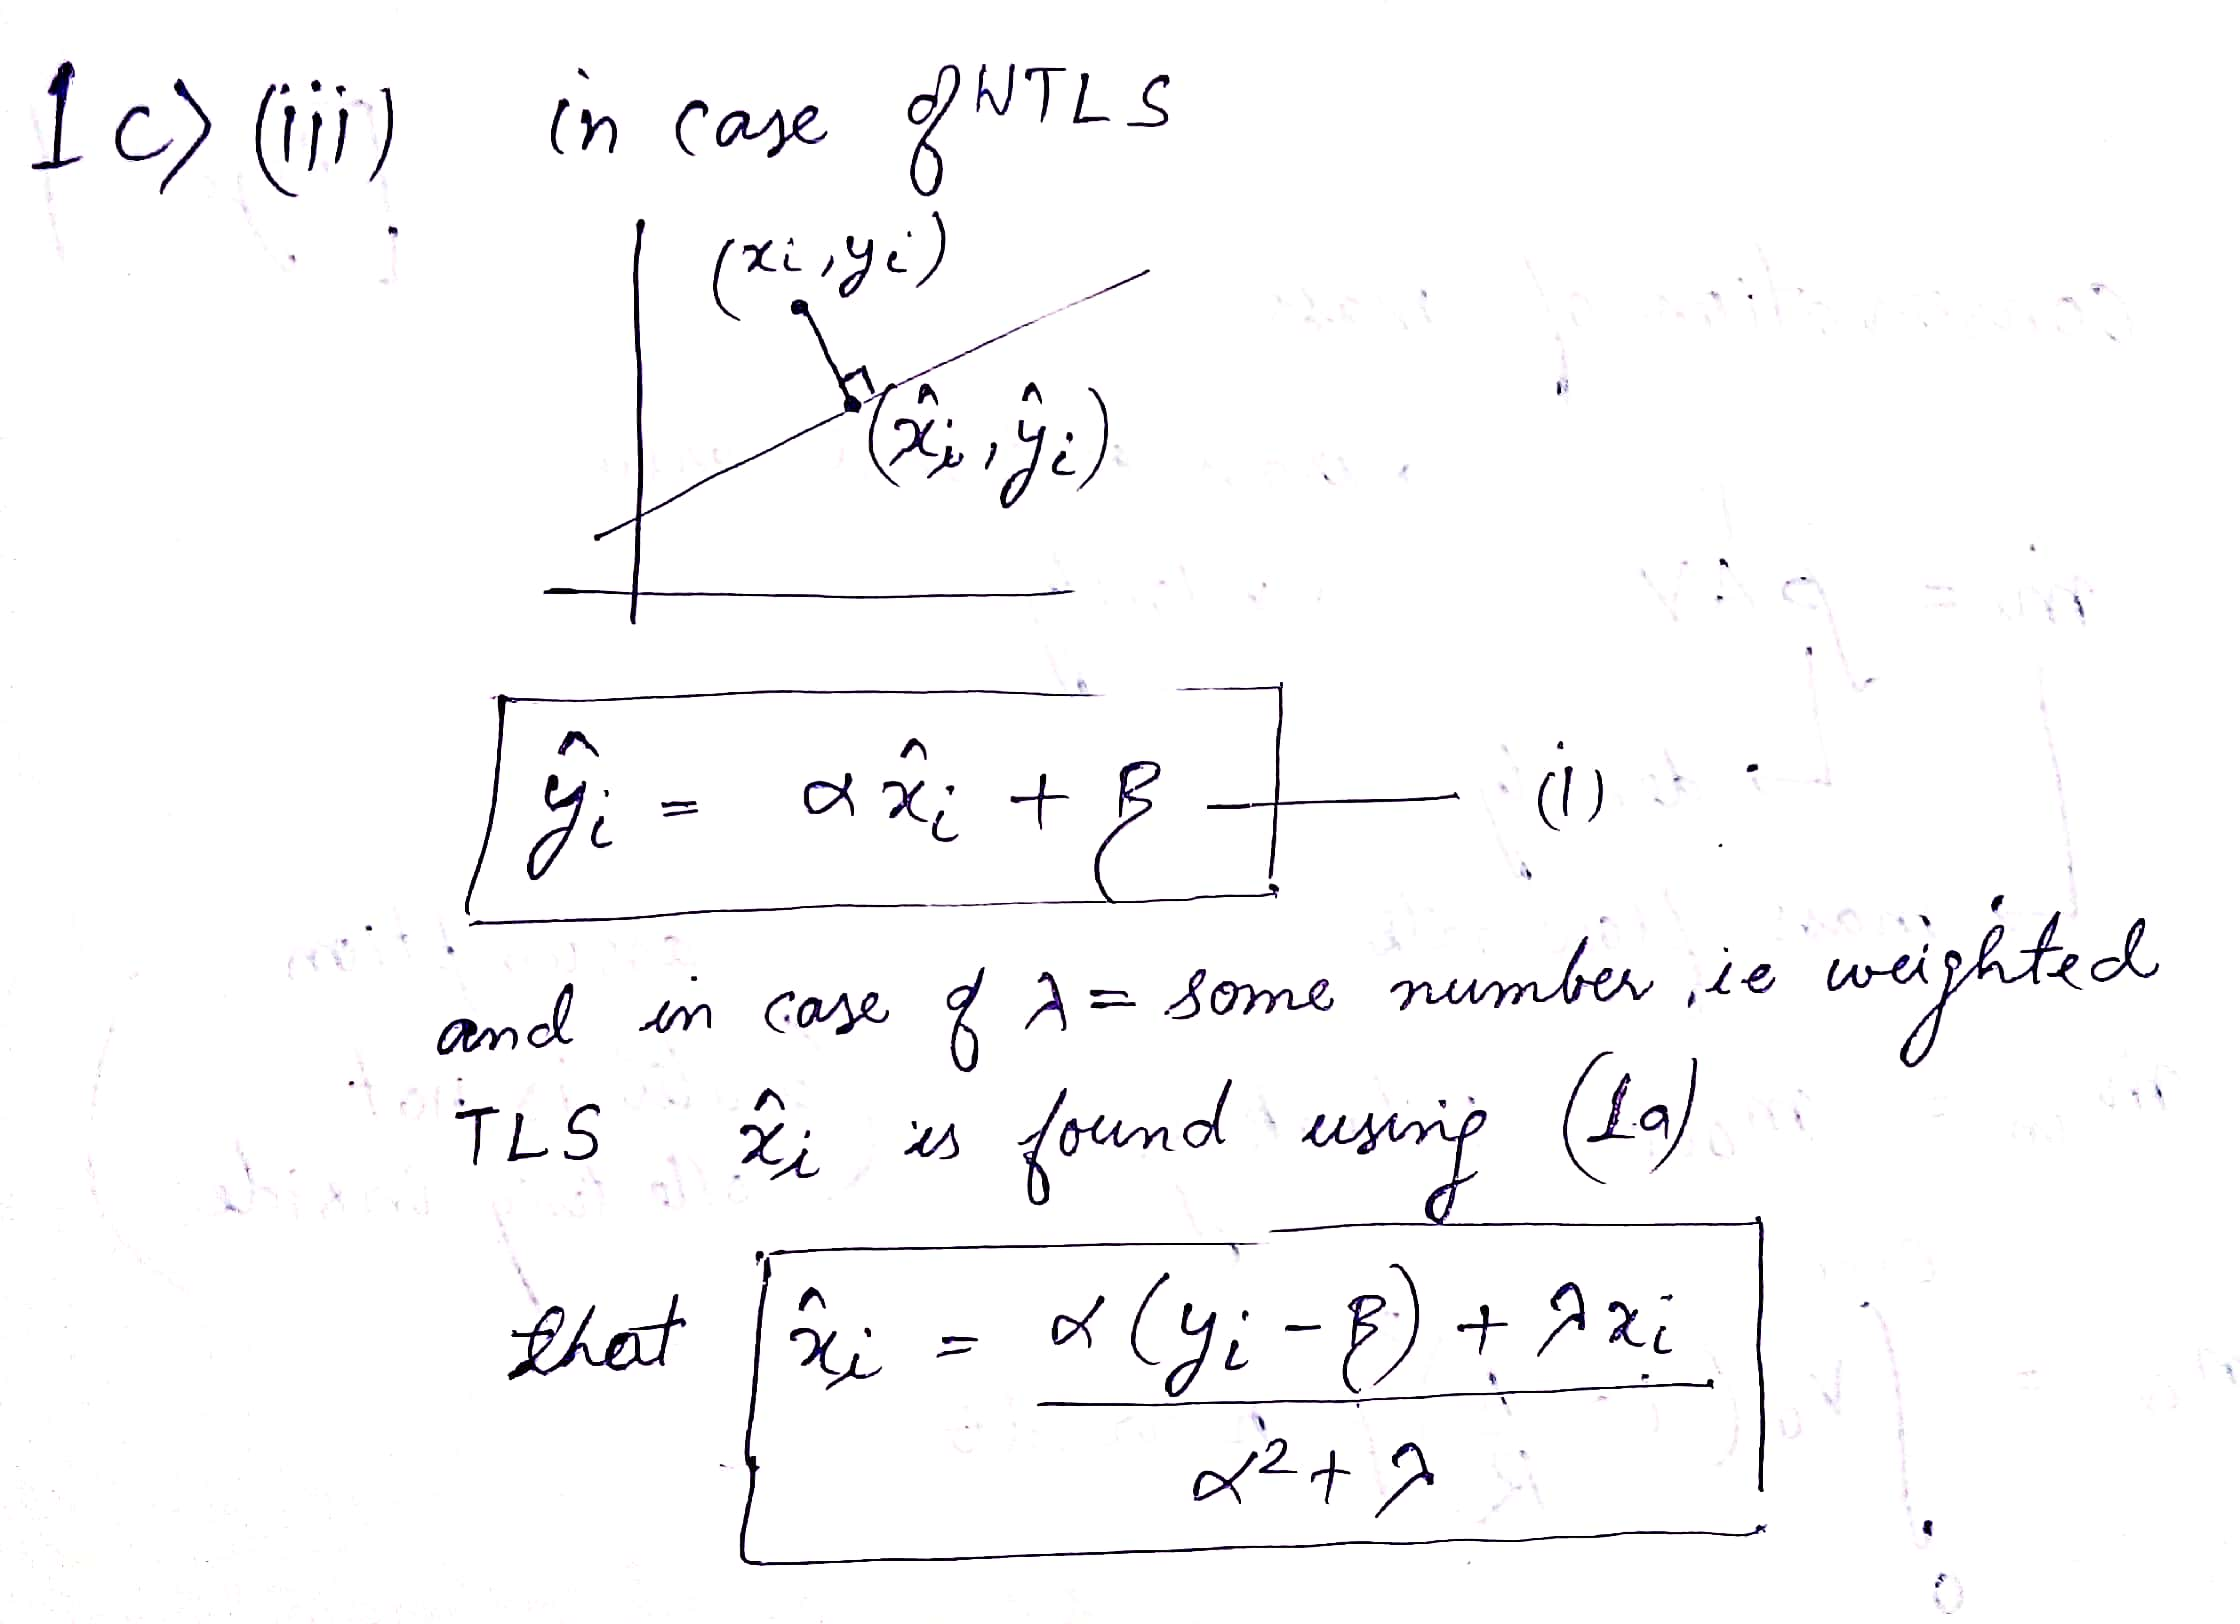 1 c) (iii) in case of WTLS
(xi, yi)
(x̂i, ŷi)
ŷi = αx̂i + β — (1)
and in case of λ = some number, ie weighted
TLS x̂i is found using (1.a)
that x̂i = α(yi - β) + λxi
α² + λ